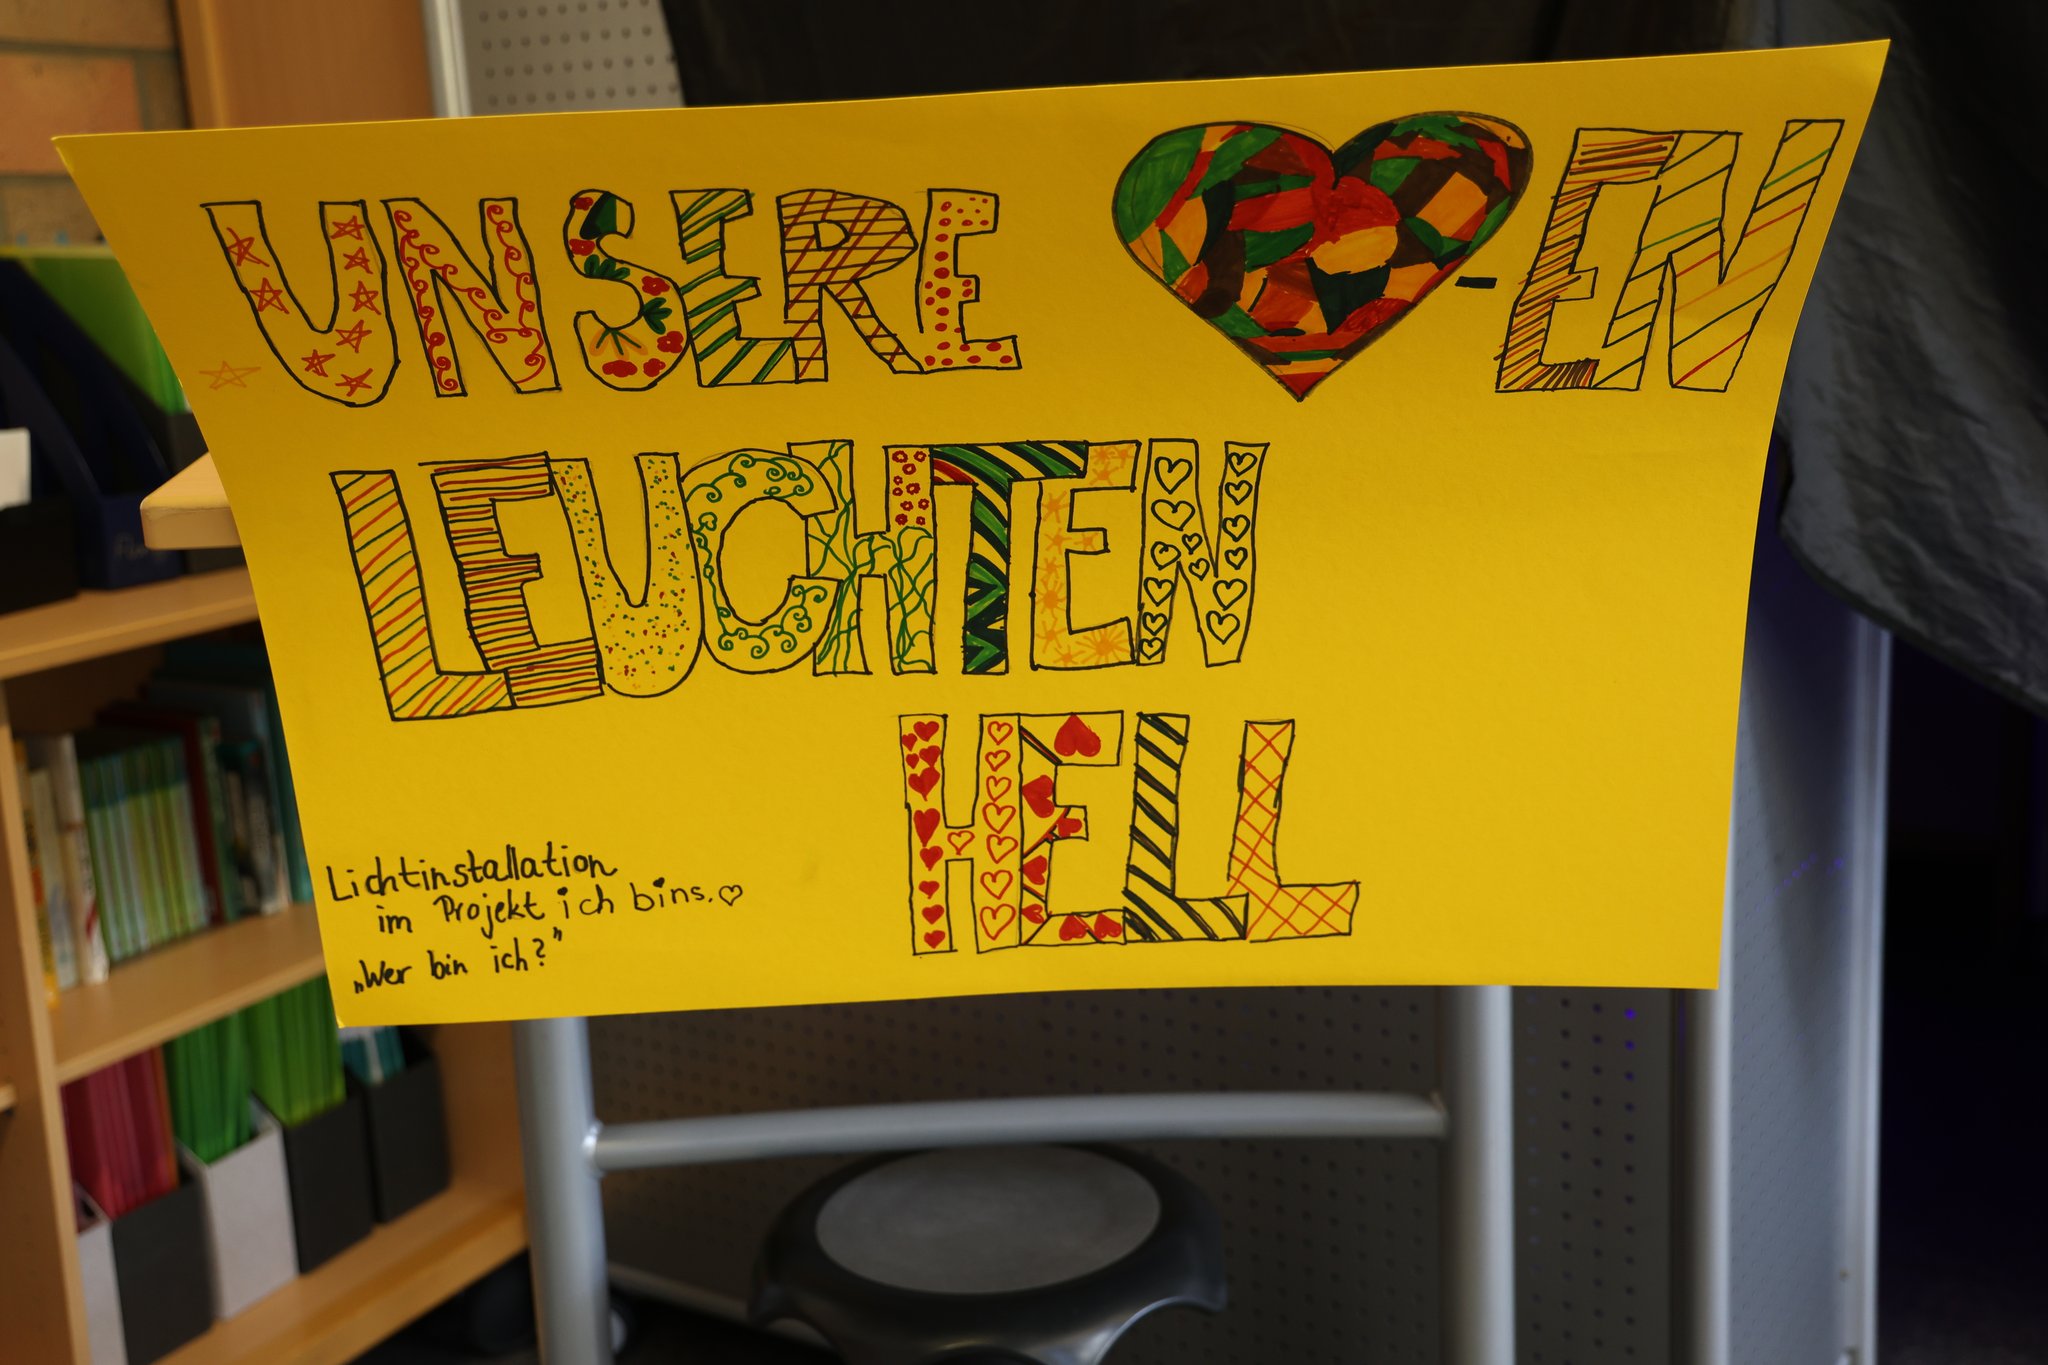 UNSERE ♥-EN
LEUCHTEN
HELL
Lichtinstallation
im Projekt ich bins. ♡
„Wer bin ich?"